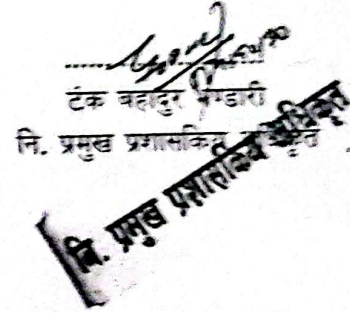 टंक बहादुर भण्डारी
नि. प्रमुख प्रशासकिय अधिकृत
नि. प्रमुख प्रशासकिय अधिकृत